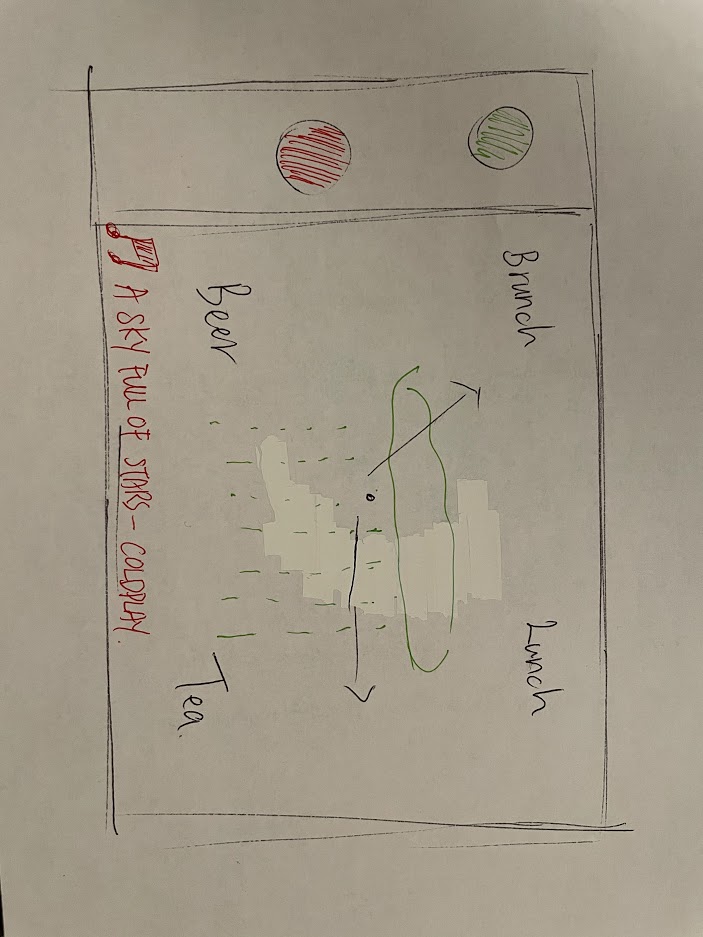 Brunch
Lunch
Beer
Tea.
A SKY FULL OF STARS - COLDPLAY.